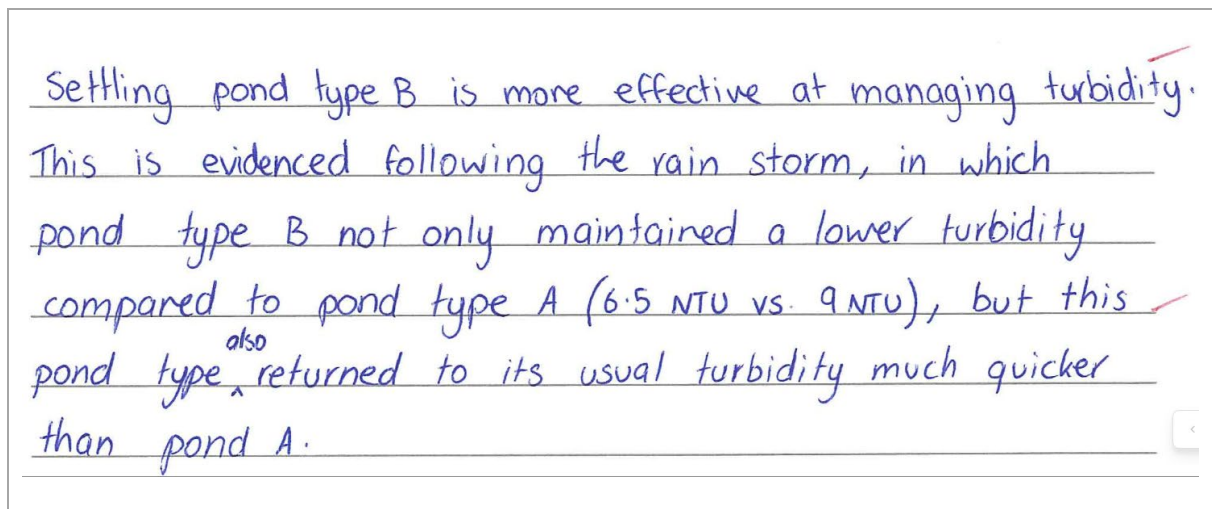 Settling pond type B is more effective at managing turbidity.
This is evidenced following the rain storm, in which
pond type B not only maintained a lower turbidity
compared to pond type A (6.5 NTU vs. 9 NTU), but this
pond type also returned to its usual turbidity much quicker
than pond A.